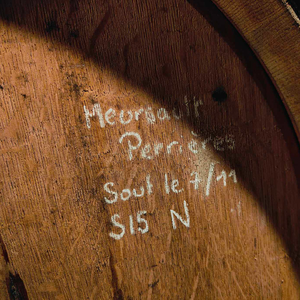 Meursault
Perrières
Sout le 7/11
S15 N